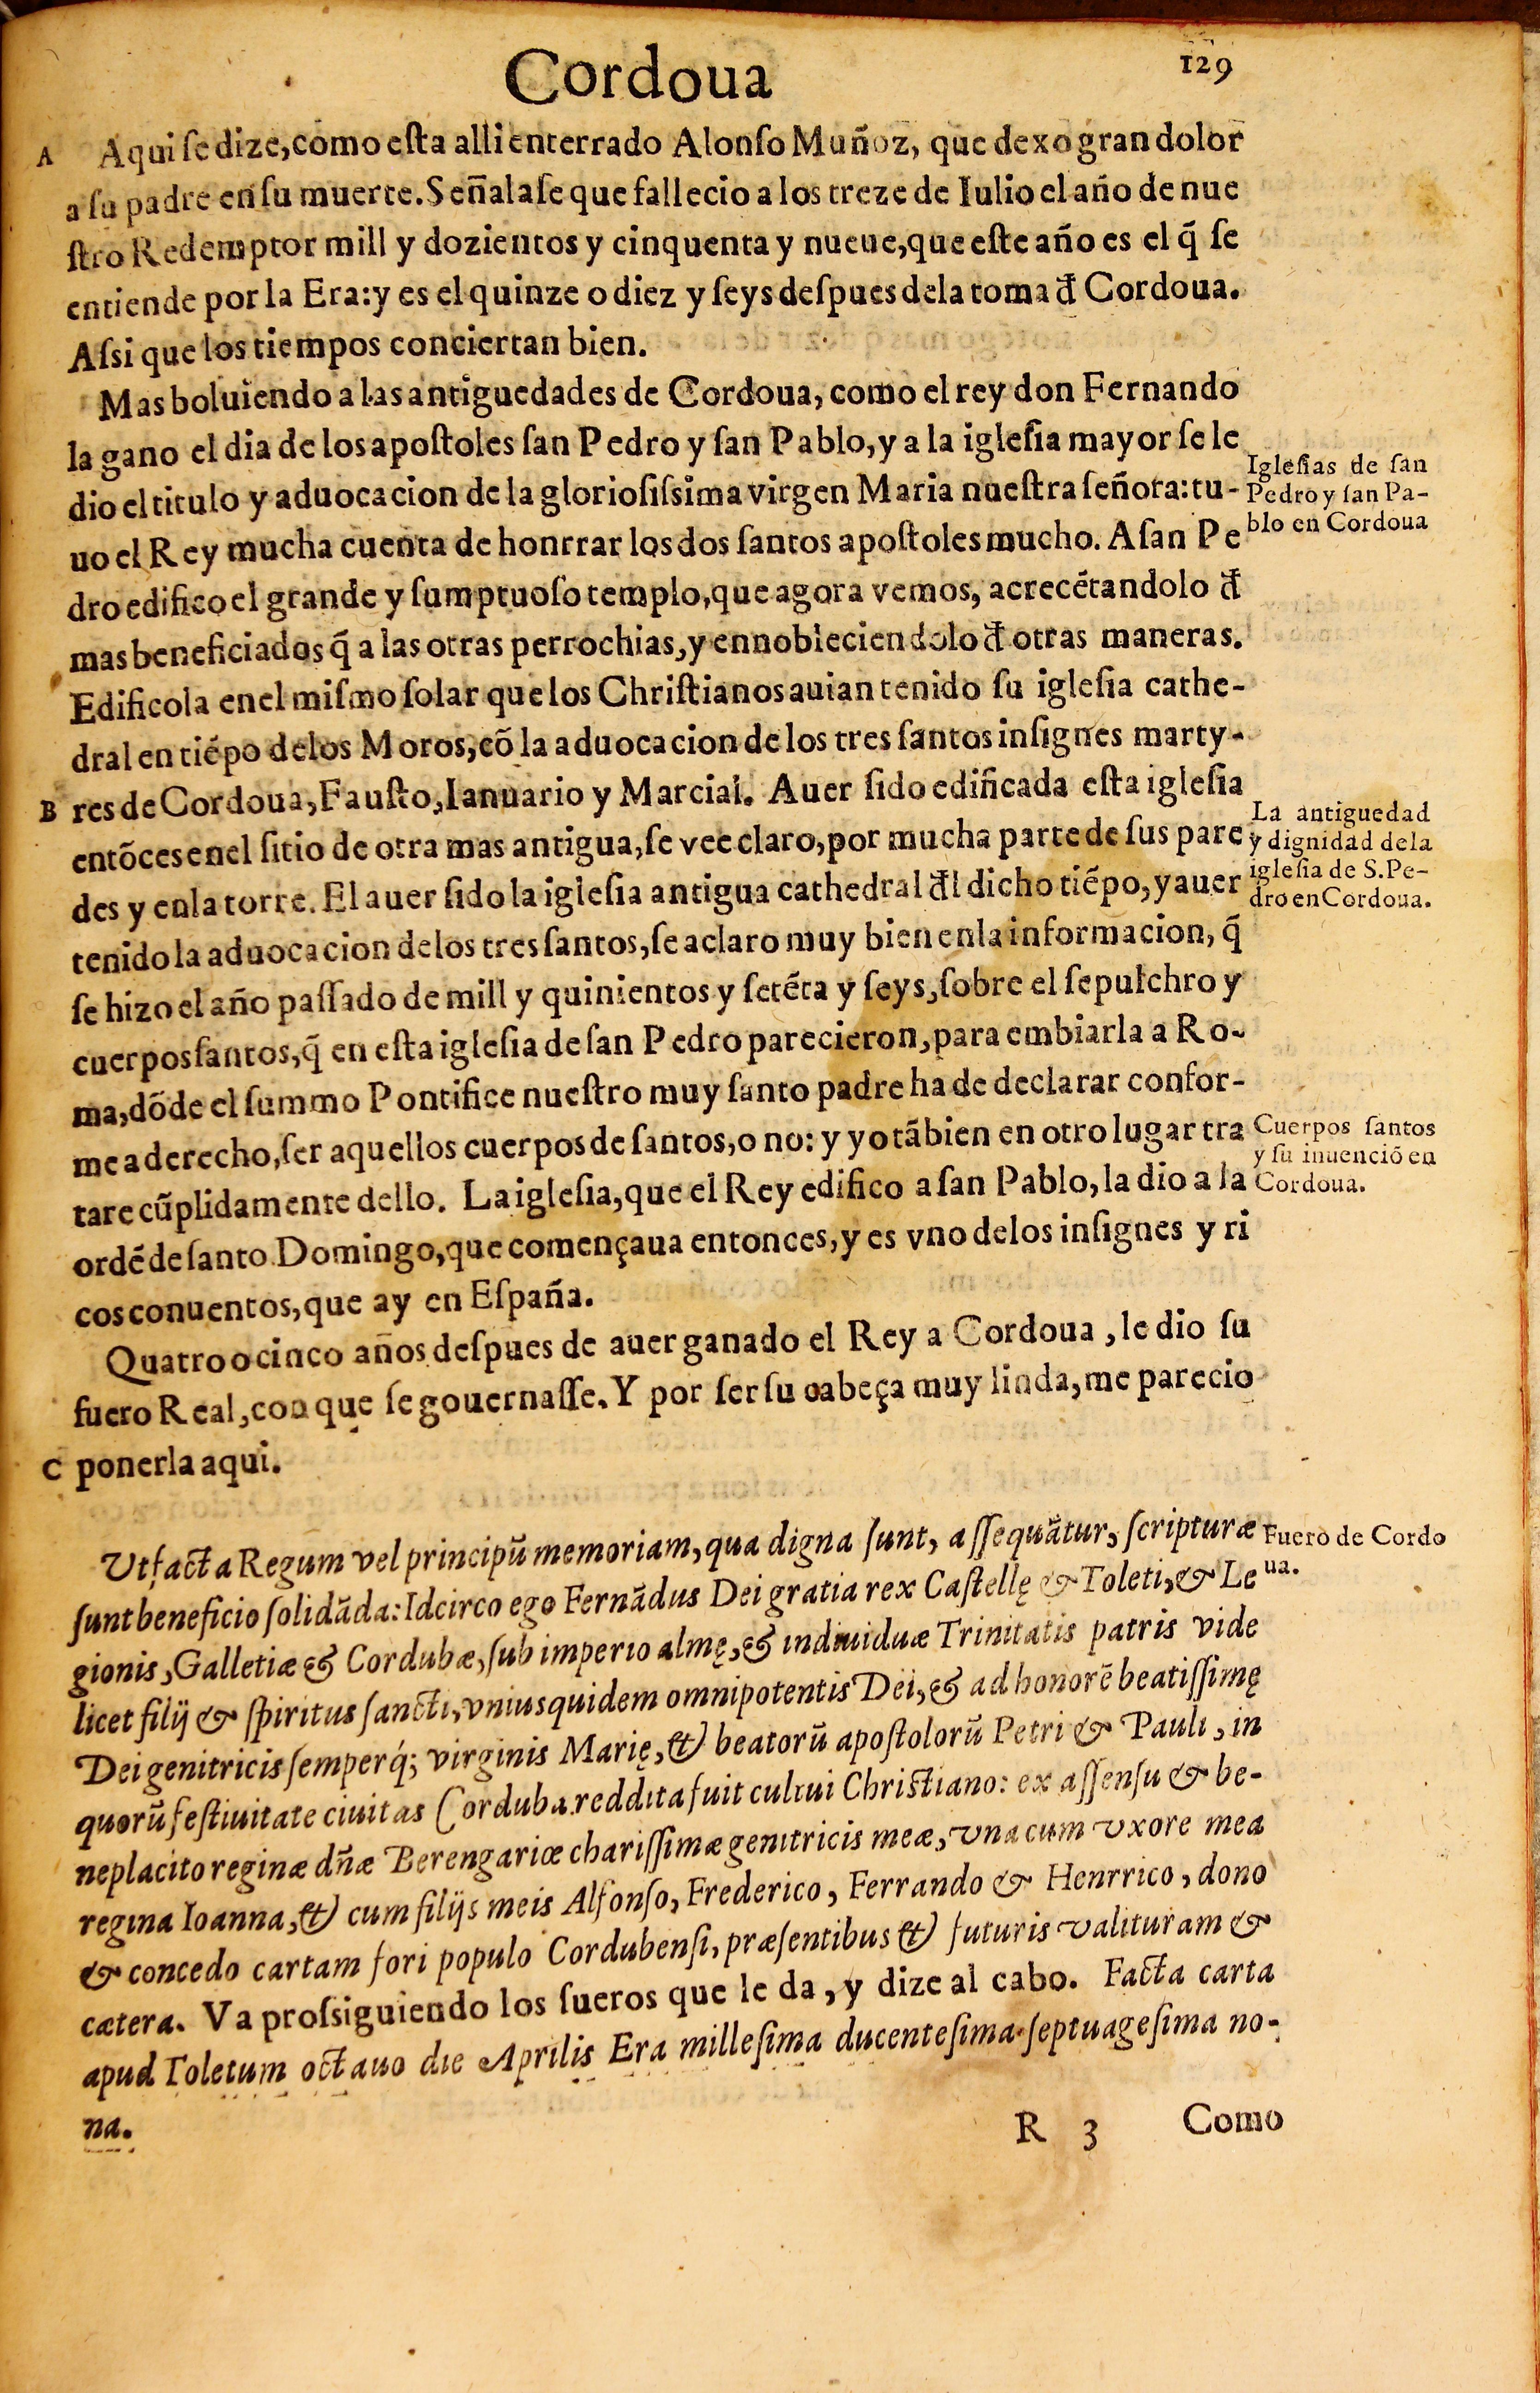 Cordoua
129
A Aqui ſe dize, como eſta alli enterrado Alonſo Muñoz, que dexo gran dolor
a ſu padre en ſu muerte. Señalaſe que fallecio a los treze de Iulio el año de nue
ſtro Redemptor mill y dozientos y cinquenta y nueue, que eſte año es el q̃ ſe
entiende por la Era: y es el quinze o diez y ſeys deſpues dela toma đ Cordoua.
Aſsi que los tiempos conciertan bien.
Mas boluiendo a las antiguedades de Cordoua, como el rey don Fernando
la gano el dia de los apoſtoles ſan Pedro y ſan Pablo, y a la igleſia mayor ſe le
dio el titulo y aduocacion de la glorioſiſsima virgen Maria nueſtra ſeñora: tu-
uo el Rey mucha cuenta de honrrar los dos ſantos apoſtoles mucho. A ſan Pe
Igleſias de ſan
Pedro y ſan Pa-
blo en Cordoua
dro edifico el grande y ſumptuoſo templo, que agora vemos, acrecẽtandolo đ
mas beneficiados q̃ a las otras perrochias, y ennobleciendolo đ otras maneras.
Edificola enel miſmo ſolar que los Chriſtianos auian tenido ſu igleſia cathe-
dral en tiẽpo delos Moros, cõ la aduocacion de los tres ſantos inſignes marty-
B res de Cordoua, Fauſto, Ianuario y Marcial. Auer ſido edificada eſta igleſia
entõces enel ſitio de otra mas antigua, ſe vee claro, por mucha parte de ſus pare
des y enla torre. El auer ſido la igleſia antigua cathedral đl dicho tiẽpo, y auer
La antiguedad
y dignidad dela
igleſia de S. Pe-
dro en Cordoua.
tenido la aduocacion delos tres ſantos, ſe aclaro muy bien enla informacion, q̃
ſe hizo el año paſſado de mill y quinientos y ſetẽta y ſeys, ſobre el ſepulchro y
cuerpos ſantos, q̃ en eſta igleſia de ſan Pedro parecieron, para embiarla a Ro-
ma, dõde el ſummo Pontifice nueſtro muy ſanto padre ha de declarar confor-
me a derecho, ſer aquellos cuerpos de ſantos, o no: y yo tãbien en otro lugar tra
tare cũplidamente dello. La igleſia, que el Rey edifico a ſan Pablo, la dio a la
Cuerpos ſantos
y ſu inuenciõ en
Cordoua.
ordẽ de ſanto Domingo, que començaua entonces, y es vno delos inſignes y ri
cos conuentos, que ay en Eſpaña.
Quatro o cinco años deſpues de auer ganado el Rey a Cordoua, le dio ſu
fuero Real, con que ſe gouernaſſe. Y por ser ſu cabeça muy linda, me parecio
C ponerla aqui.
Vt facta Regum vel principũ memoriam, qua digna ſunt, aſſequãtur, ſcripturæ
Fuero de Cordo
ua.
ſunt beneficio ſolidãda: Idcirco ego Fernãdus Dei gratia rex Caſtellę & Toleti, & Le
gionis, Galletiæ & Cordubæ, ſub imperio almę, & indiuiduæ Trinitatis patris vide
licet filij & ſpiritus ſancti, vnius quidem omnipotentis Dei, & ad honorẽ beatiſſimę
Dei genitricis ſemperq́; virginis Marię, & beatorũ apoſtolorũ Petri & Pauli, in
quorũ feſtiuitate ciuitas Corduba reddita fuit cultui Chriſtiano: ex aſſenſu & be-
neplacito reginæ dñæ Berengariæ chariſſimæ genitricis meæ, vna cum vxore mea
regina Ioanna, & cum filijs meis Alfonſo, Frederico, Ferrando & Henrrico, dono
& concedo cartam fori populo Cordubenſi, præſentibus & futuris valituram &
cætera. Va proſsiguiendo los fueros que le da, y dize al cabo. Facta carta
apud Toletum octauo die Aprilis Era milleſima ducenteſima ſeptuageſima no-
na.
R 3 Como